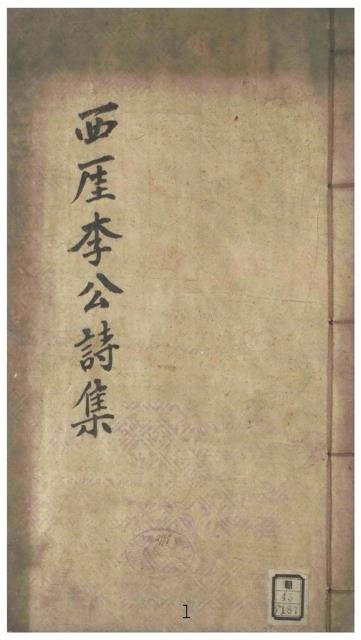 西厓李公詩集
朝
45
187
1